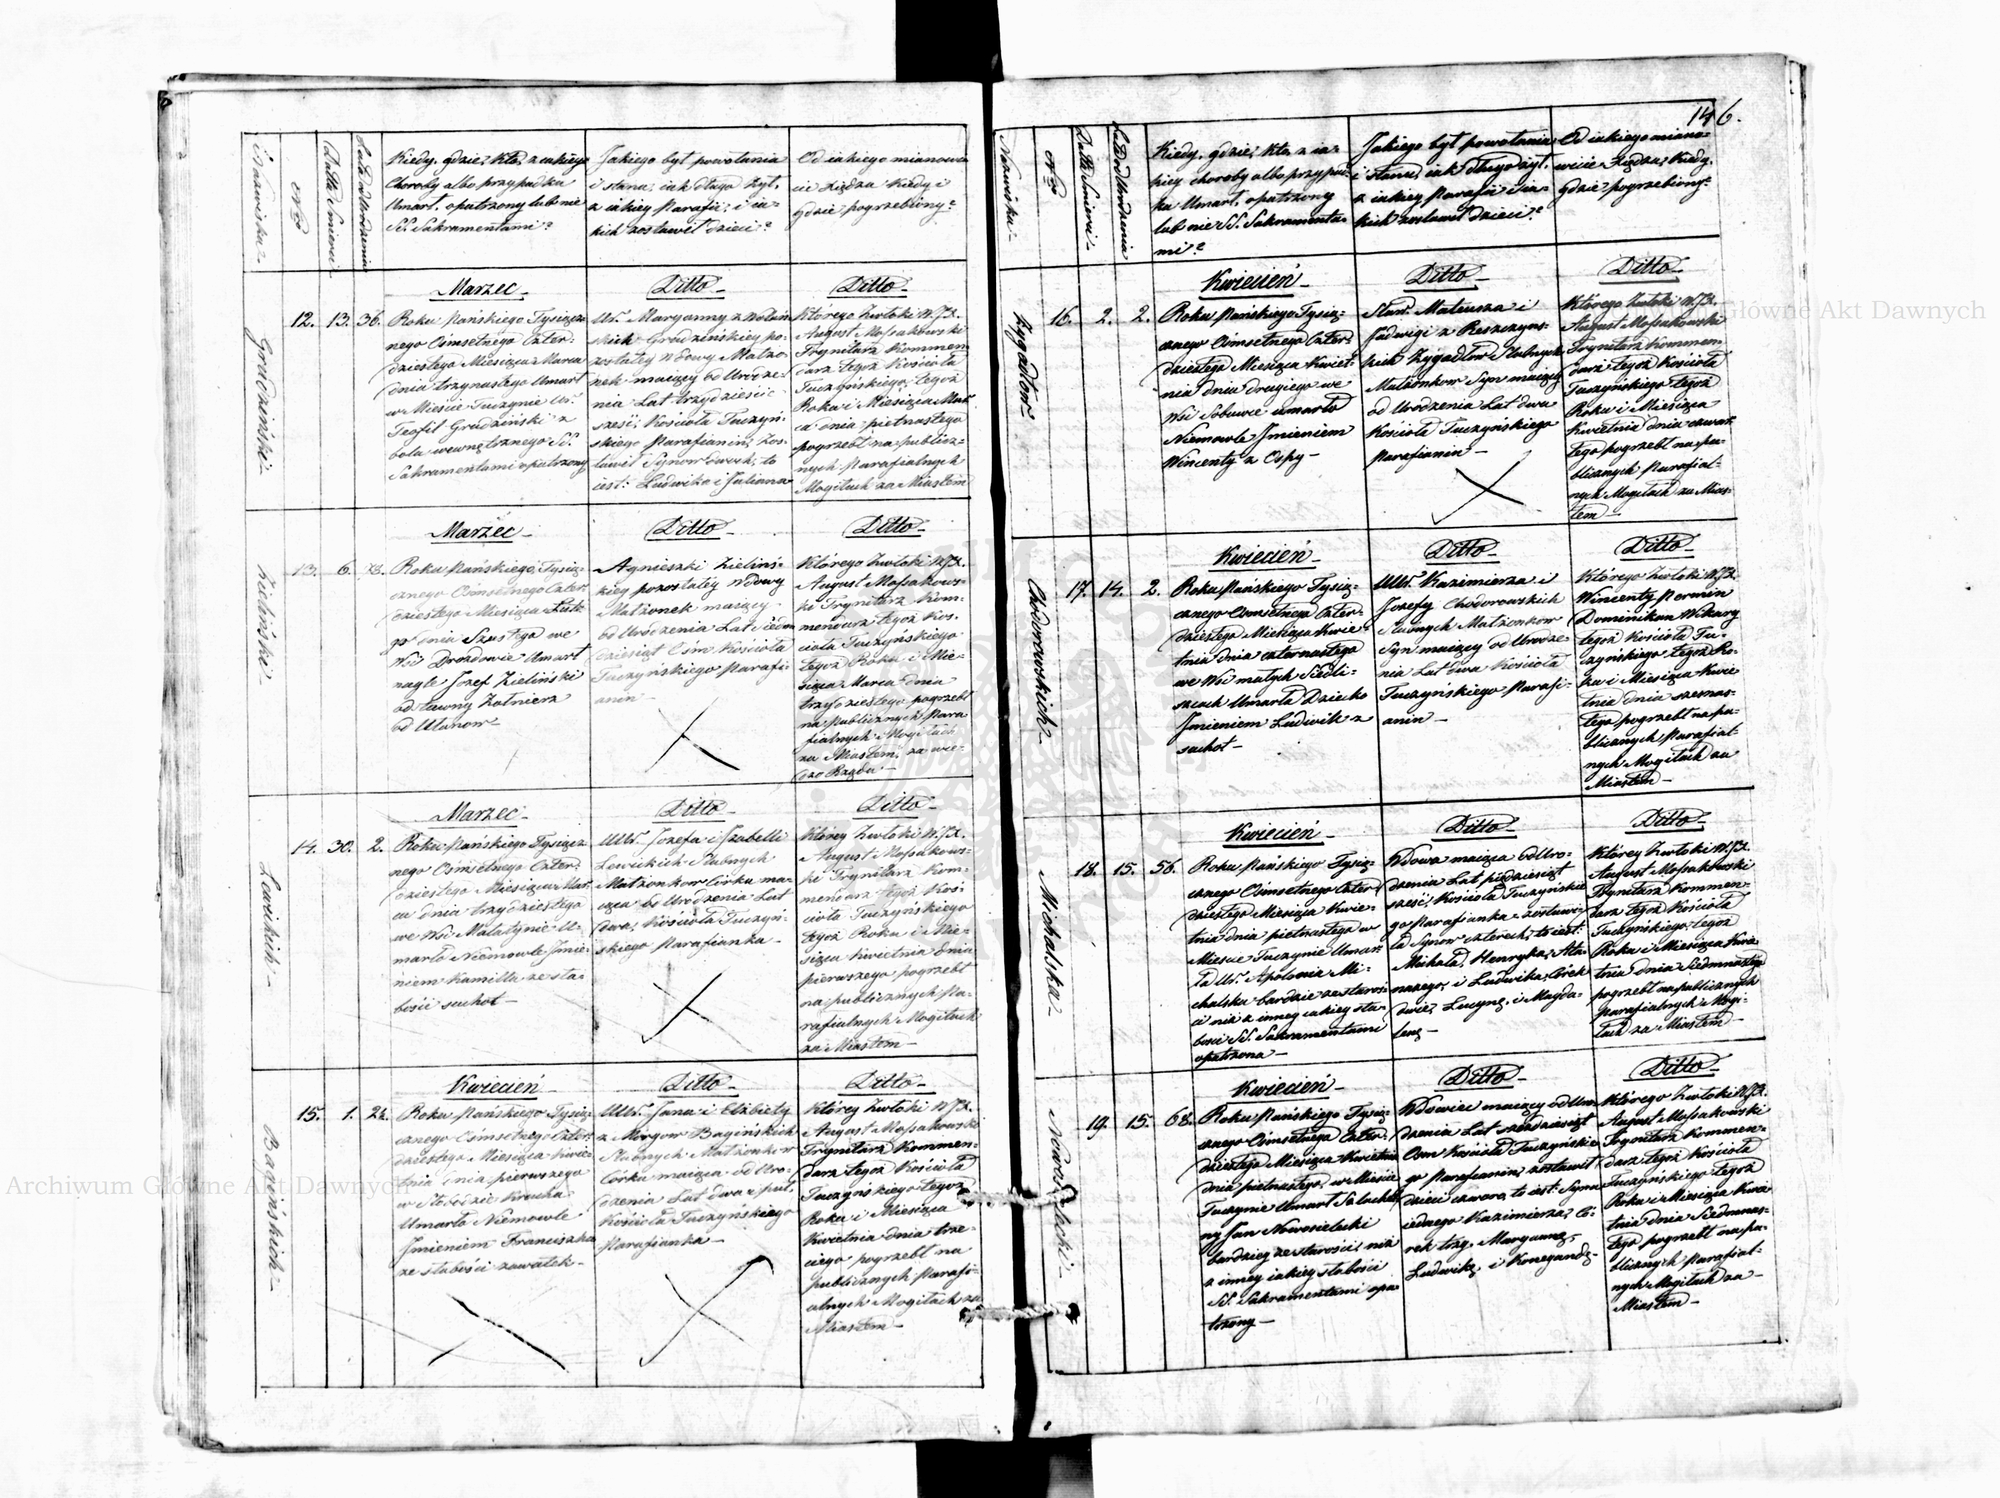 Nazwiska.
Nro
Data Smierci.
Lata od Urodzenia
Kiedy, gdzie, Kto, z iakiéy
Choroby albo przypadku
Umarł, opatrzony lub nie
SS. Sakramentami?
Jakiego był powołania
i stanu, iak długo żył,
z iakiey Parafii, i ia-
kich zostawił dzieci?
Od iakiego mianowi-
cie Xiędza Kiedy i
Gdzie pogrzebiony?
Grudziński.
12. 13. 36.
Marzec
Roku Pańskiego Tysiącz-
nego Osmsetnego Czter-
dziestego Miesiąca Marca
dnia trzynastego Umarł
w Miescie Tuczynie Ur.
Teofil Grudziński z
bolu wewnętrznego SS.
Sakramentami opatrzony
Ditto
Ur. Maryanny z
Grudzińskiey po-
zostałey Wdowy Małżo-
nek maiący od Urodze-
nia Lat trzydzieści
sześć, Kościoła Tuczyń-
skiego Parafianin, zos-
tawił Synow dwoch, to
iest: Ludwika i Juliana
Ditto
Którego Zwłoki W.JX.
August Mossakowski
Trynitarz Kommen-
darz tegoż Kościoła
Tuczyńskiego, tegoż
Roku i Miesiąca Mar-
ca dnia piętnastego
pogrzebł na publicz-
nych Parafialnych
Mogiłach za Miastem
Zieliński.
13. 6. 78.
Marzec
Roku Pańskiego, Tysią-
cznego Osmsetnego Czter-
dziestego Miesiąca
dnia Szostego we
Wsi Drozdowie Umarł
nagle Jozef Zieliński
odstawny Żołnierz
od Ułanow
Ditto
Agnieszki Zielińs-
kiey pozostałey Wdowy
Małżonek maiący
od Urodzenia Lat siedm-
dziesiąt Ośm Kościoła
Tuczyńskiego Parafi-
anin
Ditto
Którego Zwłoki W.JX.
August Mossakows-
ki Trynitarz Kom-
mendarz tegoż Koś-
cioła Tuczyńskiego
tegoż Roku i Mie-
siąca Marca dnia
trzydziestego pogrzebł
na publicznych Para-
fialnych Mogiłach
za Miastem, za wie-
Rządu
Lewickich
14. 30. 2.
Marzec
Roku Pańskiego Tysiącz-
nego Osmsetnego Czter-
dziestego Miesiąca Mar-
ca dnia trzydziestego
we Wsi Małatynie U-
marło Niemowle Jmie-
niem Kamilla ze sła-
bości suchot
Ditto
UUr. Jozefa i Jzabelli
Lewickich Slubnych
Małżonkow Córka ma-
iąca od Urodzenia Lat
dwa, Kościoła Tuczyń-
skiego Parafianka
Ditto
Którey Zwłoki W.JX.
August Mossakows-
ki Trynitarz Kom-
mendarz tegoż Koś-
cioła Tuczyńskiego
tegoż Roku i Mie-
siąca Kwietnia dnia
pierwszego pogrzebł
na publicznych Pa-
rafialnych Mogiłach
za Miastem
Bagińskich
15. 1. 2½.
Kwiecień
Roku Pańskiego Tysią-
cznego Ośmsetnego Czter-
dziestego Miesiąca Kwie-
tnia dnia pierwszego
w Słobodzie Kruska
Umarło Niemowle
Jmieniem Franciszka
ze słabości zawałek
Ditto
UUr. Jana i Elżbiety
z Morgow Bagińskich
Slubnych Małżonkow
Córka maiąca od Uro-
dzenia Lat dwa i puł,
Kościoła Tuczyńskiego
Parafianka
Ditto
Którey Zwłoki W.JX.
August Mossakowski
Trynitarz Kommen-
darz tegoż Kościoła
Tuczyńskiego tegoż
Roku i Miesiąca
Kwietnia dnia trze-
ciego pogrzebł na
publicznych Parafi-
alnych Mogiłach za
Miastem
146.
Nazwiska.
Nro
Data Smierci.
Lata od Urodzenia
Kiedy, gdzie, Kto, z ia-
kiey choroby albo przypad-
ku Umarł, opatrzony
lub nie SS. Sakramenta-
mi?
Jakiego był powołania
i stanu, iak długo żył,
z iakiey Parafii i ia-
kich zostawił dzieci?
Od iakiego miano-
wicie Xiędza, Kiedy,
Gdzie pogrzebiony?
Zygadłow
16. 2. 2.
Kwiecień
Roku Pańskiego Tysią-
cznego Ośmsetnego Czter-
dziestego Miesiąca Kwiet-
nia dnia drugiego we
Wsi Sobowie umarło
Niemowle Jmieniem
Wincenty z Ospy
Ditto
Sław. Mateusza i
Jadwigi z Reszczyńs-
kich Zygadłow Slubnych
Małżonkow Syn maiący
od Urodzenia Lat dwa
Kościoła Tuczyńskiego
Parafianin
Ditto
Którego Zwłoki W.JX.
August Mossakowski
Trynitarz Kommen-
darz tegoż Kościoła
Tuczyńskiego tegoż
Roku i Miesiąca
Kwietnia dnia czwar-
tego pogrzebł na pu-
blicznych Parafial-
nych Mogiłach za Mias-
tem
Chodorowskich
17. 14. 2.
Kwiecień
Roku Pańskiego Tysią-
cznego Osmsetnego Czter-
dziestego Miesiąca Kwie-
tnia dnia czternastego
we Wsi małych Siedli-
szczach Umarło Dziecko
Jmieniem Ludwik z
suchot
Ditto
UUr. Kazimierza i
Jozefy Chodorowskich
Slubnych Małżonkow
Syn maiący od Urodze-
nia Lat dwa Kościoła
Tuczyńskiego Parafi-
anin
Ditto
Którego Zwłoki W.JX.
Wincenty Permin
Dominikan Wikary
tegoż Kościoła Tu-
czyńskiego tegoż Ro-
ku i Miesiąca Kwie-
tnia dnia szesnas-
tego pogrzebł na pu-
blicznych Parafial-
nych Mogiłach za
Miastem
Michalska
18. 15. 56.
Kwiecień
Roku Pańskiego Tysią-
cznego Ośmsetnego Czter-
dziestego Miesiąca Kwie-
tnia dnia piętnastego w
Miescie Tuczynie Umar-
ła Ur. Apolonia Mi-
chalska bardziey ze staroś-
ci niż z inney iakiey sła-
bości SS. Sakramentami
opatrzona
Ditto
Wdowa maiąca od Uro-
dzenia Lat pięćdziesiąt
sześć, Kościoła Tuczyńskie-
go Parafianka, zostawi-
ła Synow czterech, to iest:
Michała, Henryka, Ata-
nazego, i Ludwika, Córek
dwie, Lucynę, i Magda-
lenę
Ditto
Którey Zwłoki W.JX.
August Mossakowski
Trynitarz Kommen-
darz tegoż Kościoła
Tuczyńskiego, tegoż
Roku i Miesiąca Kwie-
tnia dnia Siedmnastego
pogrzebł na publicznych
parafialnych Mogi-
łach za Miastem
Nowosielecki
19. 15. 68.
Kwiecień
Roku Pańskiego Tysią-
cznego Ośmsetnego Czter-
dziestego Miesiąca Kwietnia
dnia piętnastego, w Miescie
Tuczynie Umarł Szlachet-
ny Jan Nowosielecki
bardziey ze starości, niż
z inney iakiey słabości
SS. Sakramentami opa-
trzony
Ditto
Wdowiec maiący od Uro-
dzenia Lat sześćdziesiąt
Osm Kościoła Tuczyńskie-
go Parafianin, zostawił
dzieci czworo, to iest: Syna
iednego Kazimierza, Có-
rek trzy, Maryannę,
Ludwikę, i Konegundę
Ditto
Którego Zwłoki W.JX.
August Mossakowski
Trynitarz Kommen-
darz tegoż Kościoła
Tuczyńskiego tegoż
Roku i Miesiąca Kwie-
tnia dnia Siedmnas-
tego pogrzebł na pu-
blicznych Parafial-
nych Mogiłach za
Miastem
Archiwum Główne Akt Dawnych
Archiwum Główne Akt Dawnych